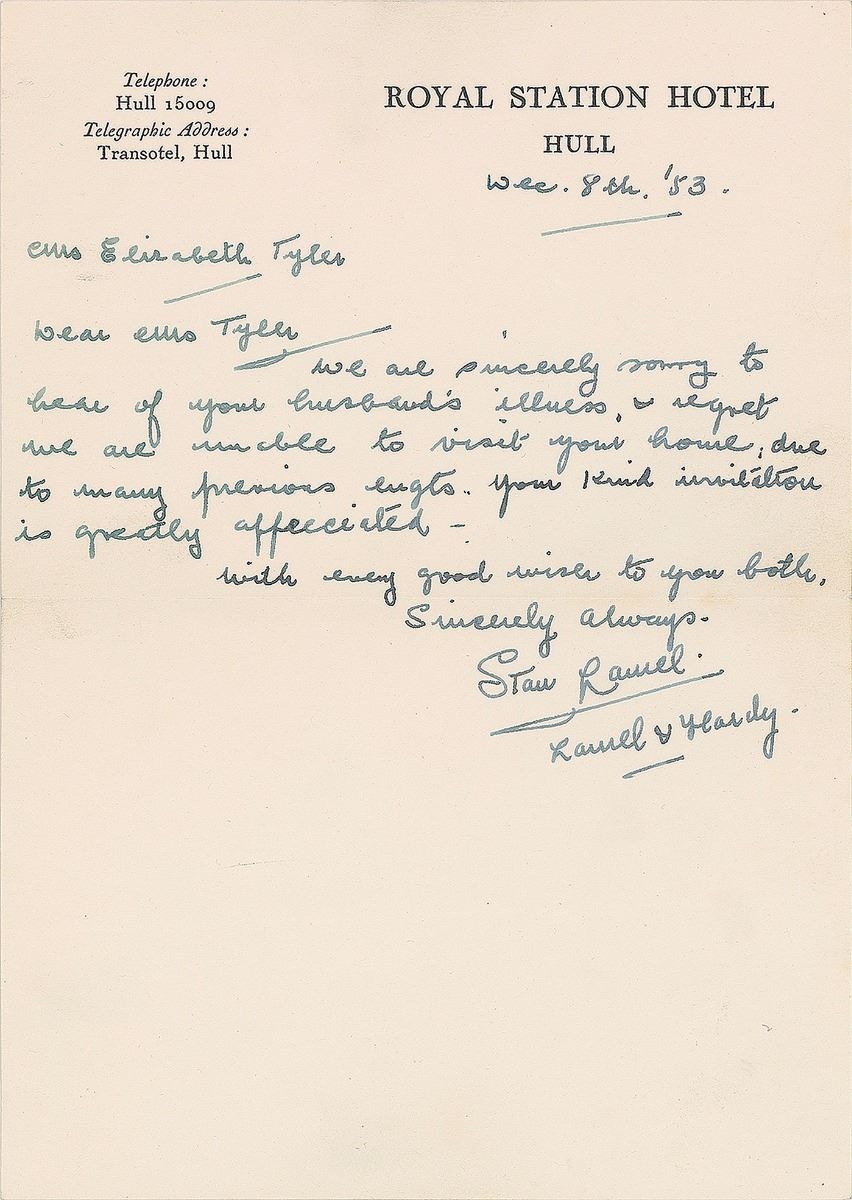 Telephone :
Hull 15009
Telegraphic Address :
Transotel, Hull
ROYAL STATION HOTEL
HULL
Dec. 8th. '53.
Mrs Elizabeth Tyler
Dear Mrs Tyler
We are sincerely sorry to
hear of your husband's illness, & regret
we are unable to visit your home, due
to many previous engts. Your kind invitation
is greatly appreciated -
With every good wish to you both.
Sincerely always.
Stan Laurel.
Laurel & Hardy.